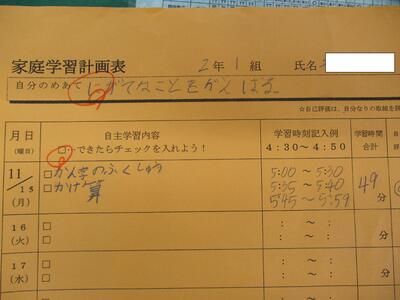 家庭学習計画表
2年1組 氏名
自分のめあて にがてなことをがんばる。
☆自己評価は、自分なりの取組を
月日(曜日) 自主学習内容 学習時刻記入例 学習時間合計
□…できたらチェックを入れよう! 4:30~4:50
11/15(月) □かん字のふくしゅう 5:00~5:30 49分
□かけ算 5:35~5:40
5:45~5:59
16(火) □ : ~ : 分
□ : ~ :
17(水) □ : ~ : 分
□ : ~ :